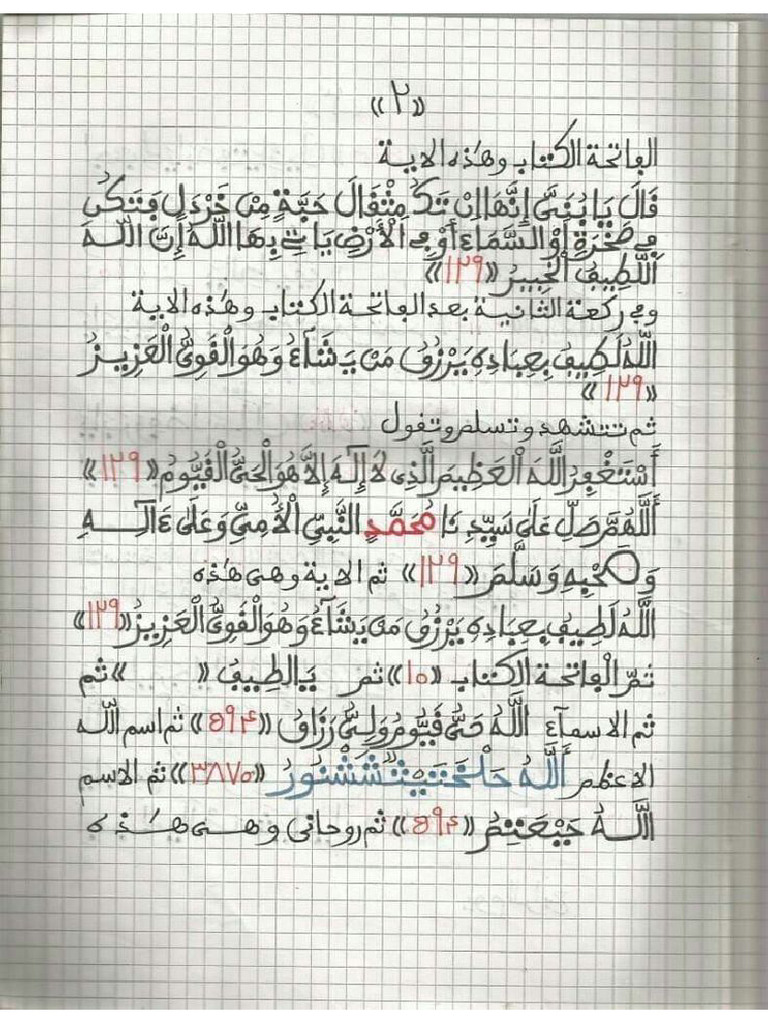 «٢»
الفاتحة الكتاب وهذه الاية
قَالَ يَا بُنَىَّ إِنَّهَا إِن تَكُ مِثْقَالَ حَبَّةٍ مِنْ خَرْدَلٍ فَتَكُن
فِى صَخْرَةٍ أَوْ السَّمَاءِ أَوْ فِى الْأَرْضِ يَاتِ بِهَا اللَّهُ إِنَّ اللَّهَ
اللَّطِيفُ الْخَبِيرُ «١٢٩»
وفى ركعة الثانية بعد الفاتحة الكتاب وهذه الاية
اللَّهُ لَطِيفٌ بِعِبَادِهِ يَرْزُقُ مَن يَشَآءُ وَهُوَ الْقَوِىُّ الْعَزِيزُ
«١٢٩»
ثم تتشهد وتسلم وتقول
أَسْتَغْفِرُ اللَّهَ الْعَظِيمَ الَّذِى لَا إِلَهَ إِلَّا هُوَ الْحَىُّ الْقَيُّومُ «١٢٩»
أَللَّهُمَّ صَلِّ عَلَى سَيِّدِنَا مُحَمَّدٍ النَّبِىِّ الْأُمِىِّ وَعَلَى ءَالِهِ
وَصَحْبِهِ وَسَلَّمَ «١٢٩» ثم الاية وهى هذه
اللَّهُ لَطِيفٌ بِعِبَادِهِ يَرْزُقُ مَن يَشَآءُ وَهُوَ الْقَوِىُّ الْعَزِيزُ «١٢٩»
ثمّ الْفاتحة الكتاب «١٥» ثم يَالطِيفُ « » ثم
ثم الاسمآء اللَّهُ حَىٌّ قَيُّومُ وَلِىٌّ رَزَاقُ «٥٩۴» ثم اسم اللّه
الاعظم أَللَّهُ «٣٨٧٥» ثم الاسم
اللَّهُ «٥٩۴» ثم روحانى وهى هذه